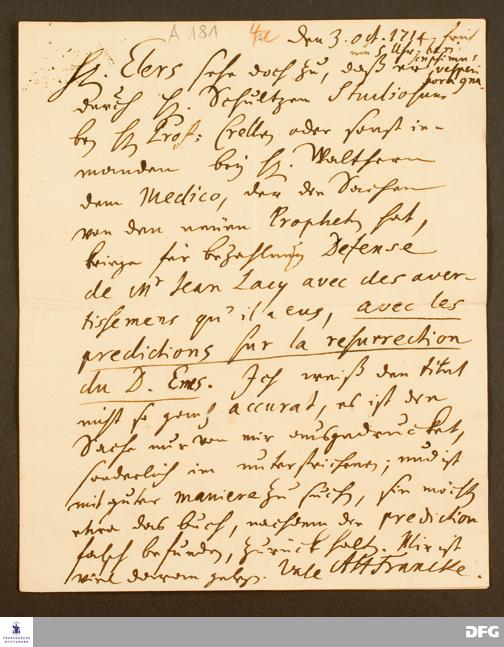 A 181
den 3. oct. 1714. früh
um 5 Uhr.
scripsimus
vesperi
hora 9na.
H. Elers sehe doch zu, daß er
durch H. Schultzen Studiosum
bey H Prof: Crellen oder sonst je-
manden bey H. Walthern
dem Medico, der die Sachen
von den neüen Propheten hat,
kriege für bezahlung Defense
de Mr Jean Lacy avec des aver-
tissemens qu'il a eus, avec les
predictions sur la resurrection
du D. Emes. Ich weiß den titul
nicht so gantz accurat, es ist die
Sache nur von mir ausgedrucket,
sonderlich im unterstrichenen; und ist
mit guter maniere zu suchen, sie möchten
etwa das buch, nachdem die prediction
falsch befunden, zurück halten. Mir ist
viel daran gelegen. Vale AHFrancke.
FRANCKESCHE
STIFTUNGEN
DFG